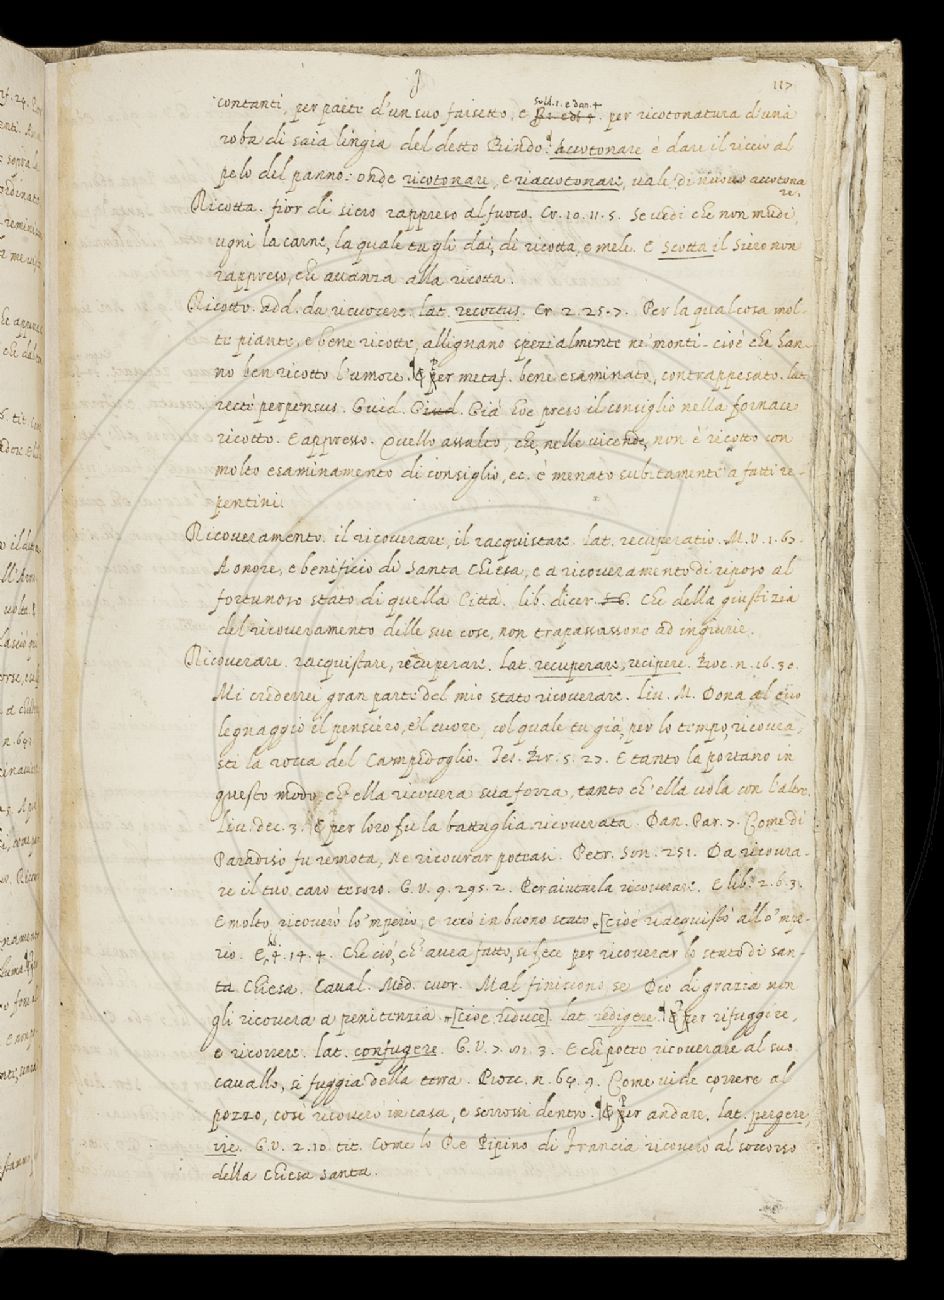 117
contanti, per parte d'un suo farsetto, e sold. 1. e dan. 4 per ricotonatura d'una
roba di saia lingia del detto Bindo. Accotonare è dare il riccio al
pelo del panno: onde ricotonare, e riaccotonare, vale di nuovo accotona
re.
Ricotta. fior di siero rappreso al fuoco. Cr. 10. 11. 5. Se vedi che non mudi,
ugni la carne, la quale tu gli dai, di ricotta, e mele. E Scotta il Siero non
rappreso, che avanza alla ricotta.
Ricotto. add. da ricuocere. lat. recoctus. Cr. 2. 25. 7. Per la qual cosa mol-
te piante, e bene ricotte, allignano spezialmente ne monti. cioè che han-
no ben ricotto l'umore. ¶ Per metaf. bene esaminato, contrappesato. lat.
recte perpensus. Guid. Giud. Già have preso il consiglio nella fornace
ricotto. E appresso. Quello assalto, che, nelle vicende, non è ricotto con
molto esaminamento di consiglio, ec. è menato subitamente a fatti re-
pentini.
Ricoveramento. il ricoverare, il racquistare. lat. recuperatio. M. V. 1. 63.
A onore, e beneficio di Santa Chiesa, e a ricoveramento di riposo al
fortunoso stato di quella Città. lib. dicer. Che della giustizia
del ricoveramento delle sue cose, non trapassassono ad ingiurie.
Ricoverare. racquistare, recuperare. lat. recuperare, recipere. Bocc. n. 16. 30.
Mi crederrei gran parte del mio stato ricoverare. Liv. M. Dona al tuo
legnaggio il pensiero, e 'l cuore, col quale tu già, per lo tempo, ricovra-
sti la rocca del Campidoglio. Tes. Br. 5. 27. E tanto la portano in
questo modo, ch' ella ricovera sua forza, tanto ch' ella vola con l'altre.
Liv. dec. 3. E per loro fu la battaglia ricoverata. Dan. Par. 7. Come di
Paradiso fu remota, Ne ricovrar poteasi. Petr. Son. 251. Da ricovra-
re il tuo caro tesoro. G. V. 9. 295. 2. Per aiutarla ricoverare. E lib. 2. 6. 3.
E molto ricoverò lo 'mperio, e recò in buono stato [cioè riacquistò all' o 'mpe-
rio. E, 4. 14. 4. Che ciò, ch' avea fatto, si fece per ricoverar lo stato di san-
ta Chiesa. Caval. Med. cuor. Mal finiscono se Dio di grazia non
gli ricovera a penitenzia [cioè riduce] lat. redigere. ¶ Per rifuggire,
e ricorrere. lat. confugere. G. V. 7. 3. E chi potto ricoverare al suo
cavallo, si fuggia della terra. Bocc. n. 64. 9. Come vide correre al
pozzo, così ricoverò in casa, e serrossi dentro. ¶ Per andare. lat. pergere,
ire. G. V. 2. 10. tit. Come lo Re Pipino di Francia ricoverò al soccorso
della Chiesa Santa.